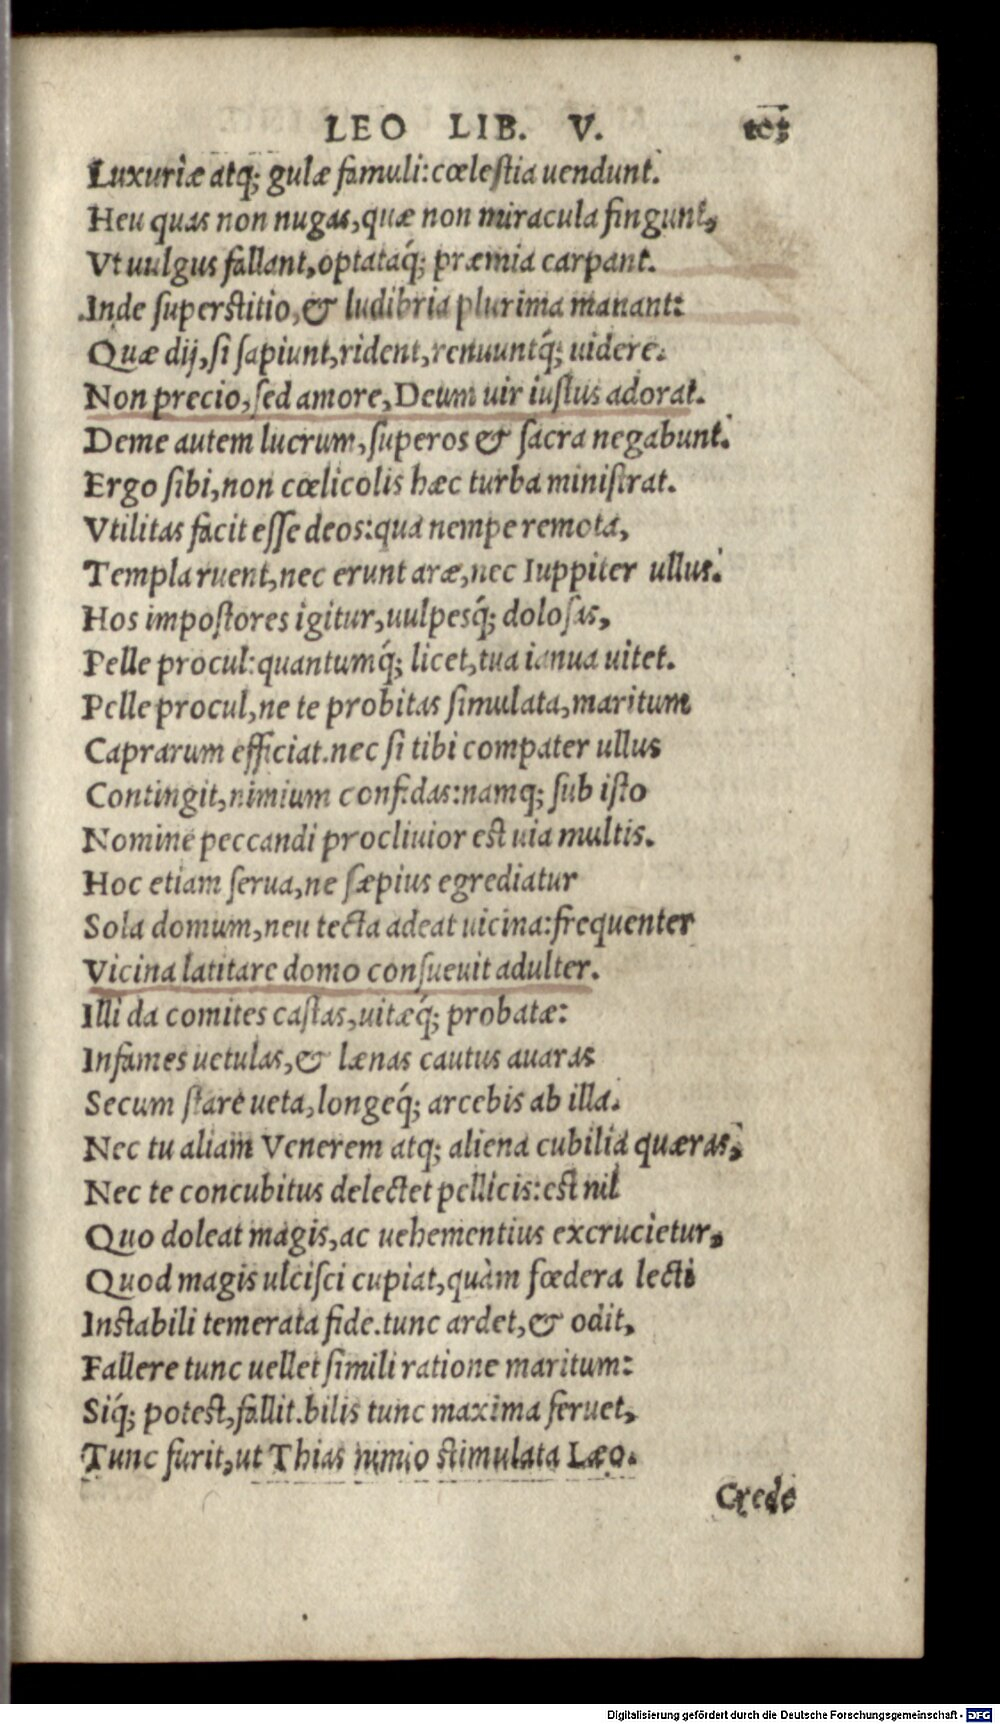 LEO LIB. V. 103
Luxuriæ atq; gulæ famuli: cœlestia uendunt.
Heu quas non nugas, quæ non miracula fingunt,
Vt uulgus fallant, optataq́; præmia carpant.
Inde superstitio, & ludibria plurima manant:
Quæ dij, si sapiunt, rident, renuuntq́; uidere.
Non precio, sed amore, Deum uir iustus adorat.
Deme autem lucrum, superos & sacra negabunt.
Ergo sibi, non cœlicolis hæc turba ministrat.
Vtilitas facit esse deos: qua nempe remota,
Templa ruent, nec erunt aræ, nec Iuppiter ullus.
Hos impostores igitur, uulpesq́; dolosas,
Pelle procul: quantumq́; licet, tua ianua uitet.
Pelle procul, ne te probitas simulata, maritum
Caprarum efficiat. nec si tibi compater ullus
Contingit, nimium confidas: namq; sub isto
Nomine peccandi procliuior est uia multis.
Hoc etiam serua, ne sæpius egrediatur
Sola domum, neu tecta adeat uicina: frequenter
Vicina latitare domo consueuit adulter.
Illi da comites castas, uitæq́; probatæ:
Infames uetulas, & lænas cautus auaras
Secum stare ueta, longeq́; arcebis ab illa.
Nec tu aliam Venerem atq; aliena cubilia quæras,
Nec te concubitus delectet pellicis: est nil
Quo doleat magis, ac uehementius excrucietur,
Quod magis ulcisci cupiat, quàm fœdera lecti
Instabili temerata fide. tunc ardet, & odit,
Fallere tunc uellet simili ratione maritum:
Siq́; potest, fallit. bilis tunc maxima feruet,
Tunc furit, ut Thias nimio stimulata Læo.
Crede
Digitalisierung gefördert durch die Deutsche Forschungsgemeinschaft - DFG